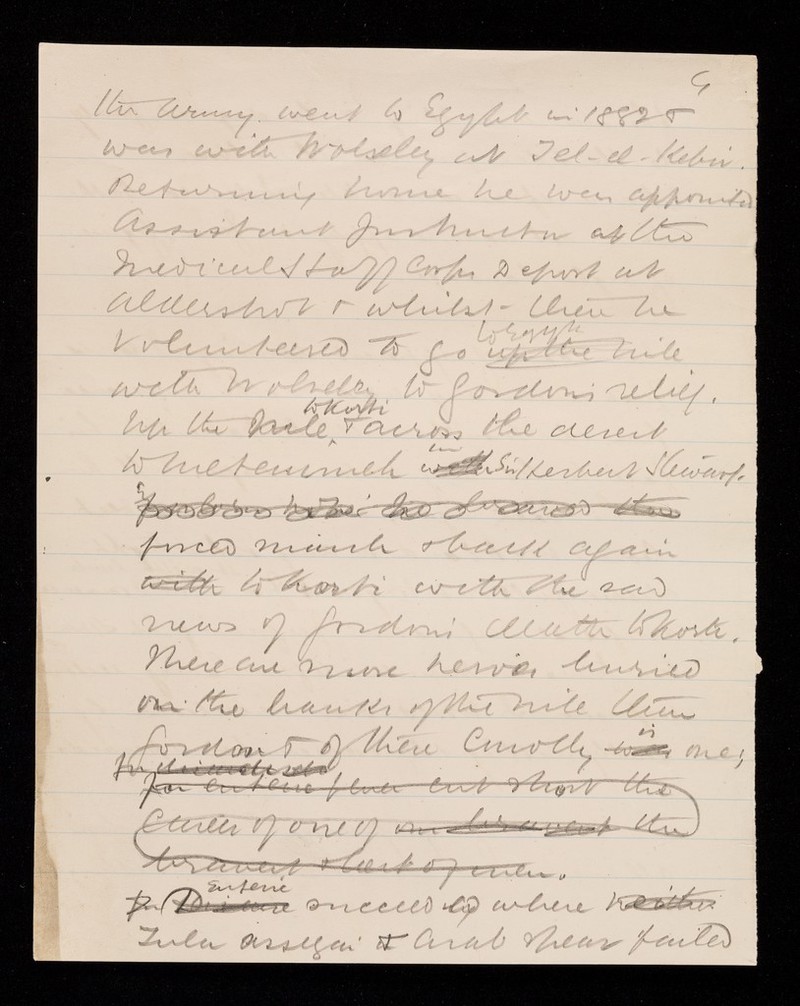 6
the Army. went to Egypt in 1882 &
was with Wolseley at Tel-el-Kebir.
Returning home he was appointed
Assistant Instructor at the
Medical Staff Corps Depost at
Aldershot & whilst there he
to Egypt
volunteered to go up the nile
with Wolseley to Gordons relief.
to Korti
Up the Nile & across the desert
in
to Metemmeh with Sir Herbert Stewart
forced march & back again
with to Korti with the sad
news of Gordon's death to Korti.
There are more heroes buried
on the banks of the nile than
is
Gordon & of these Connolly was one;
for enteric fever cut short the
career of one of the
bravest & best of men.
Enteric
Disease succeeded where neither
Zulu assegai & Arab spear failed